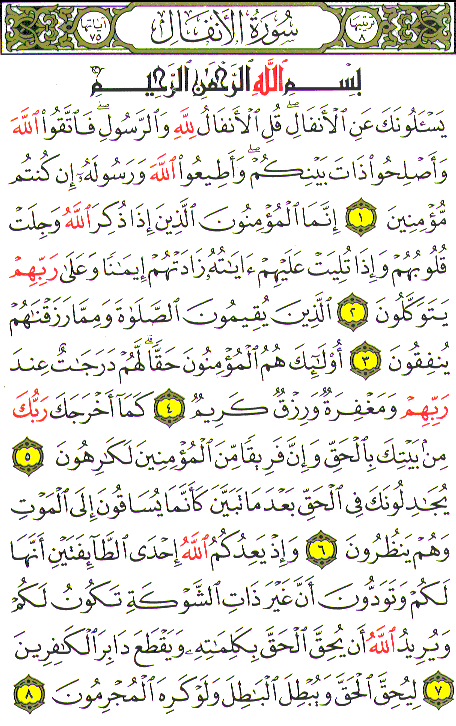 ترتيبها ٨ سُورَةُ الْأَنْفَالِ آياتها ٧٥
بِسْمِ اللَّهِ الرَّحْمَٰنِ الرَّحِيمِ
يَسْـَٔلُونَكَ عَنِ ٱلْأَنفَالِۖ قُلِ ٱلْأَنفَالُ لِلَّهِ وَٱلرَّسُولِۖ فَٱتَّقُوا۟ ٱللَّهَ
وَأَصْلِحُوا۟ ذَاتَ بَيْنِكُمْۖ وَأَطِيعُوا۟ ٱللَّهَ وَرَسُولَهُۥٓ إِن كُنتُم
مُّؤْمِنِينَ ١ إِنَّمَا ٱلْمُؤْمِنُونَ ٱلَّذِينَ إِذَا ذُكِرَ ٱللَّهُ وَجِلَتْ
قُلُوبُهُمْ وَإِذَا تُلِيَتْ عَلَيْهِمْ ءَايَٰتُهُۥ زَادَتْهُمْ إِيمَٰنًا وَعَلَىٰ رَبِّهِمْ
يَتَوَكَّلُونَ ٢ ٱلَّذِينَ يُقِيمُونَ ٱلصَّلَوٰةَ وَمِمَّا رَزَقْنَٰهُمْ
يُنفِقُونَ ٣ أُو۟لَٰٓئِكَ هُمُ ٱلْمُؤْمِنُونَ حَقًّاۚ لَّهُمْ دَرَجَٰتٌ عِندَ
رَبِّهِمْ وَمَغْفِرَةٌ وَرِزْقٌ كَرِيمٌ ٤ كَمَآ أَخْرَجَكَ رَبُّكَ
مِنۢ بَيْتِكَ بِٱلْحَقِّ وَإِنَّ فَرِيقًا مِّنَ ٱلْمُؤْمِنِينَ لَكَٰرِهُونَ ٥
يُجَٰدِلُونَكَ فِى ٱلْحَقِّ بَعْدَ مَا تَبَيَّنَ كَأَنَّمَا يُسَاقُونَ إِلَى ٱلْمَوْتِ
وَهُمْ يَنظُرُونَ ٦ وَإِذْ يَعِدُكُمُ ٱللَّهُ إِحْدَى ٱلطَّآئِفَتَيْنِ أَنَّهَا
لَكُمْ وَتَوَدُّونَ أَنَّ غَيْرَ ذَاتِ ٱلشَّوْكَةِ تَكُونُ لَكُمْ
وَيُرِيدُ ٱللَّهُ أَن يُحِقَّ ٱلْحَقَّ بِكَلِمَٰتِهِۦ وَيَقْطَعَ دَابِرَ ٱلْكَٰفِرِينَ
٧ لِيُحِقَّ ٱلْحَقَّ وَيُبْطِلَ ٱلْبَٰطِلَ وَلَوْ كَرِهَ ٱلْمُجْرِمُونَ ٨